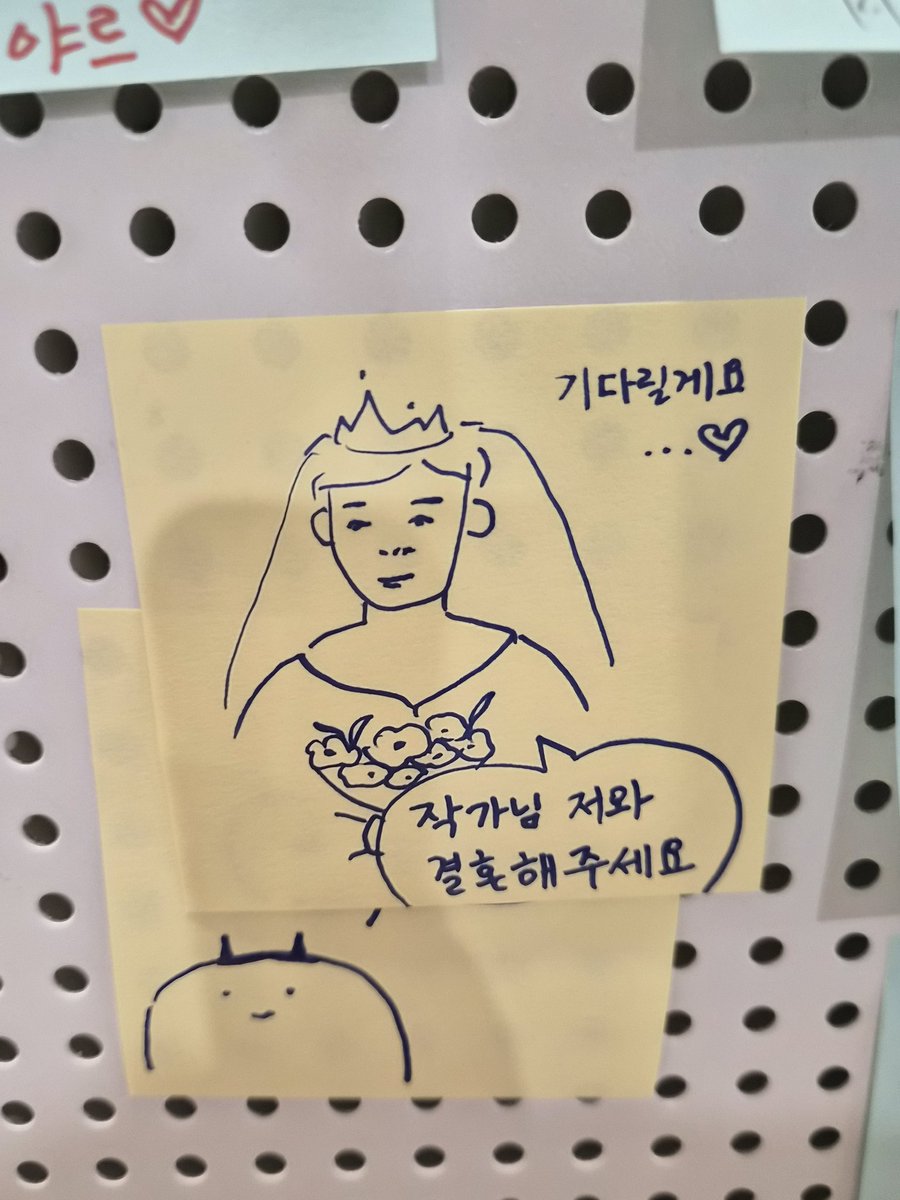 야르♡
기다릴게요
...♡
작가님 저와
결혼해주세요